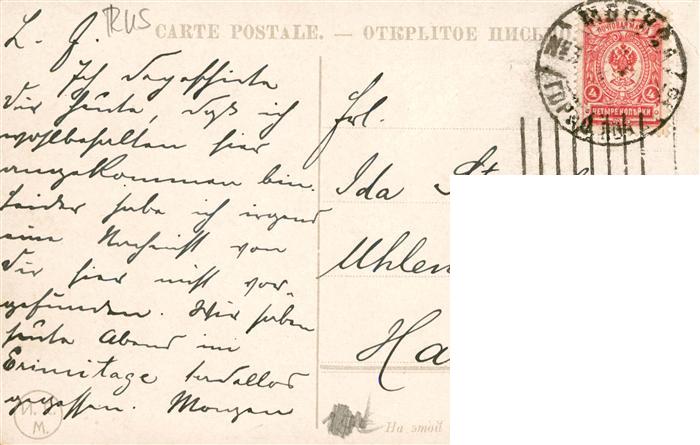 RUS
CARTE POSTALE. — ОТКРЫТОЕ ПИСЬ
L. J.
Ich depeschirte
dir heute, daß ich
wohlbehalten hier
angekommen bin.
Leider habe ich irgend
eine Nachricht von
dir hier nicht vor-
gefunden. Wir haben
heute Abend im
Erimitage tadellos
gegessen. Morgen
Frl.
Ida
Uhlen
Ha
На этой
МОСКВА
ПОЧТОВАЯ МАРКА
4 4
ЧЕТЫРЕ КОПѢЙКИ
М.